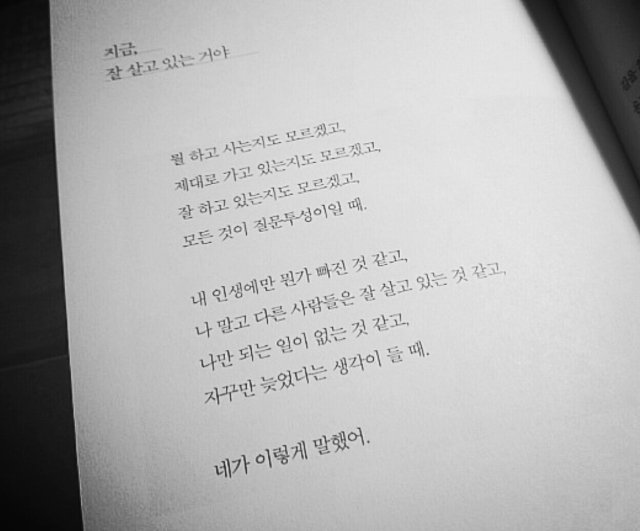 지금,
잘 살고 있는 거야
뭘 하고 사는지도 모르겠고,
제대로 가고 있는지도 모르겠고,
잘 하고 있는지도 모르겠고,
모든 것이 질문투성이일 때.
내 인생에만 뭔가 빠진 것 같고,
나 말고 다른 사람들은 잘 살고 있는 것 같고,
나만 되는 일이 없는 것 같고,
자꾸만 늦었다는 생각이 들 때.
네가 이렇게 말했어.